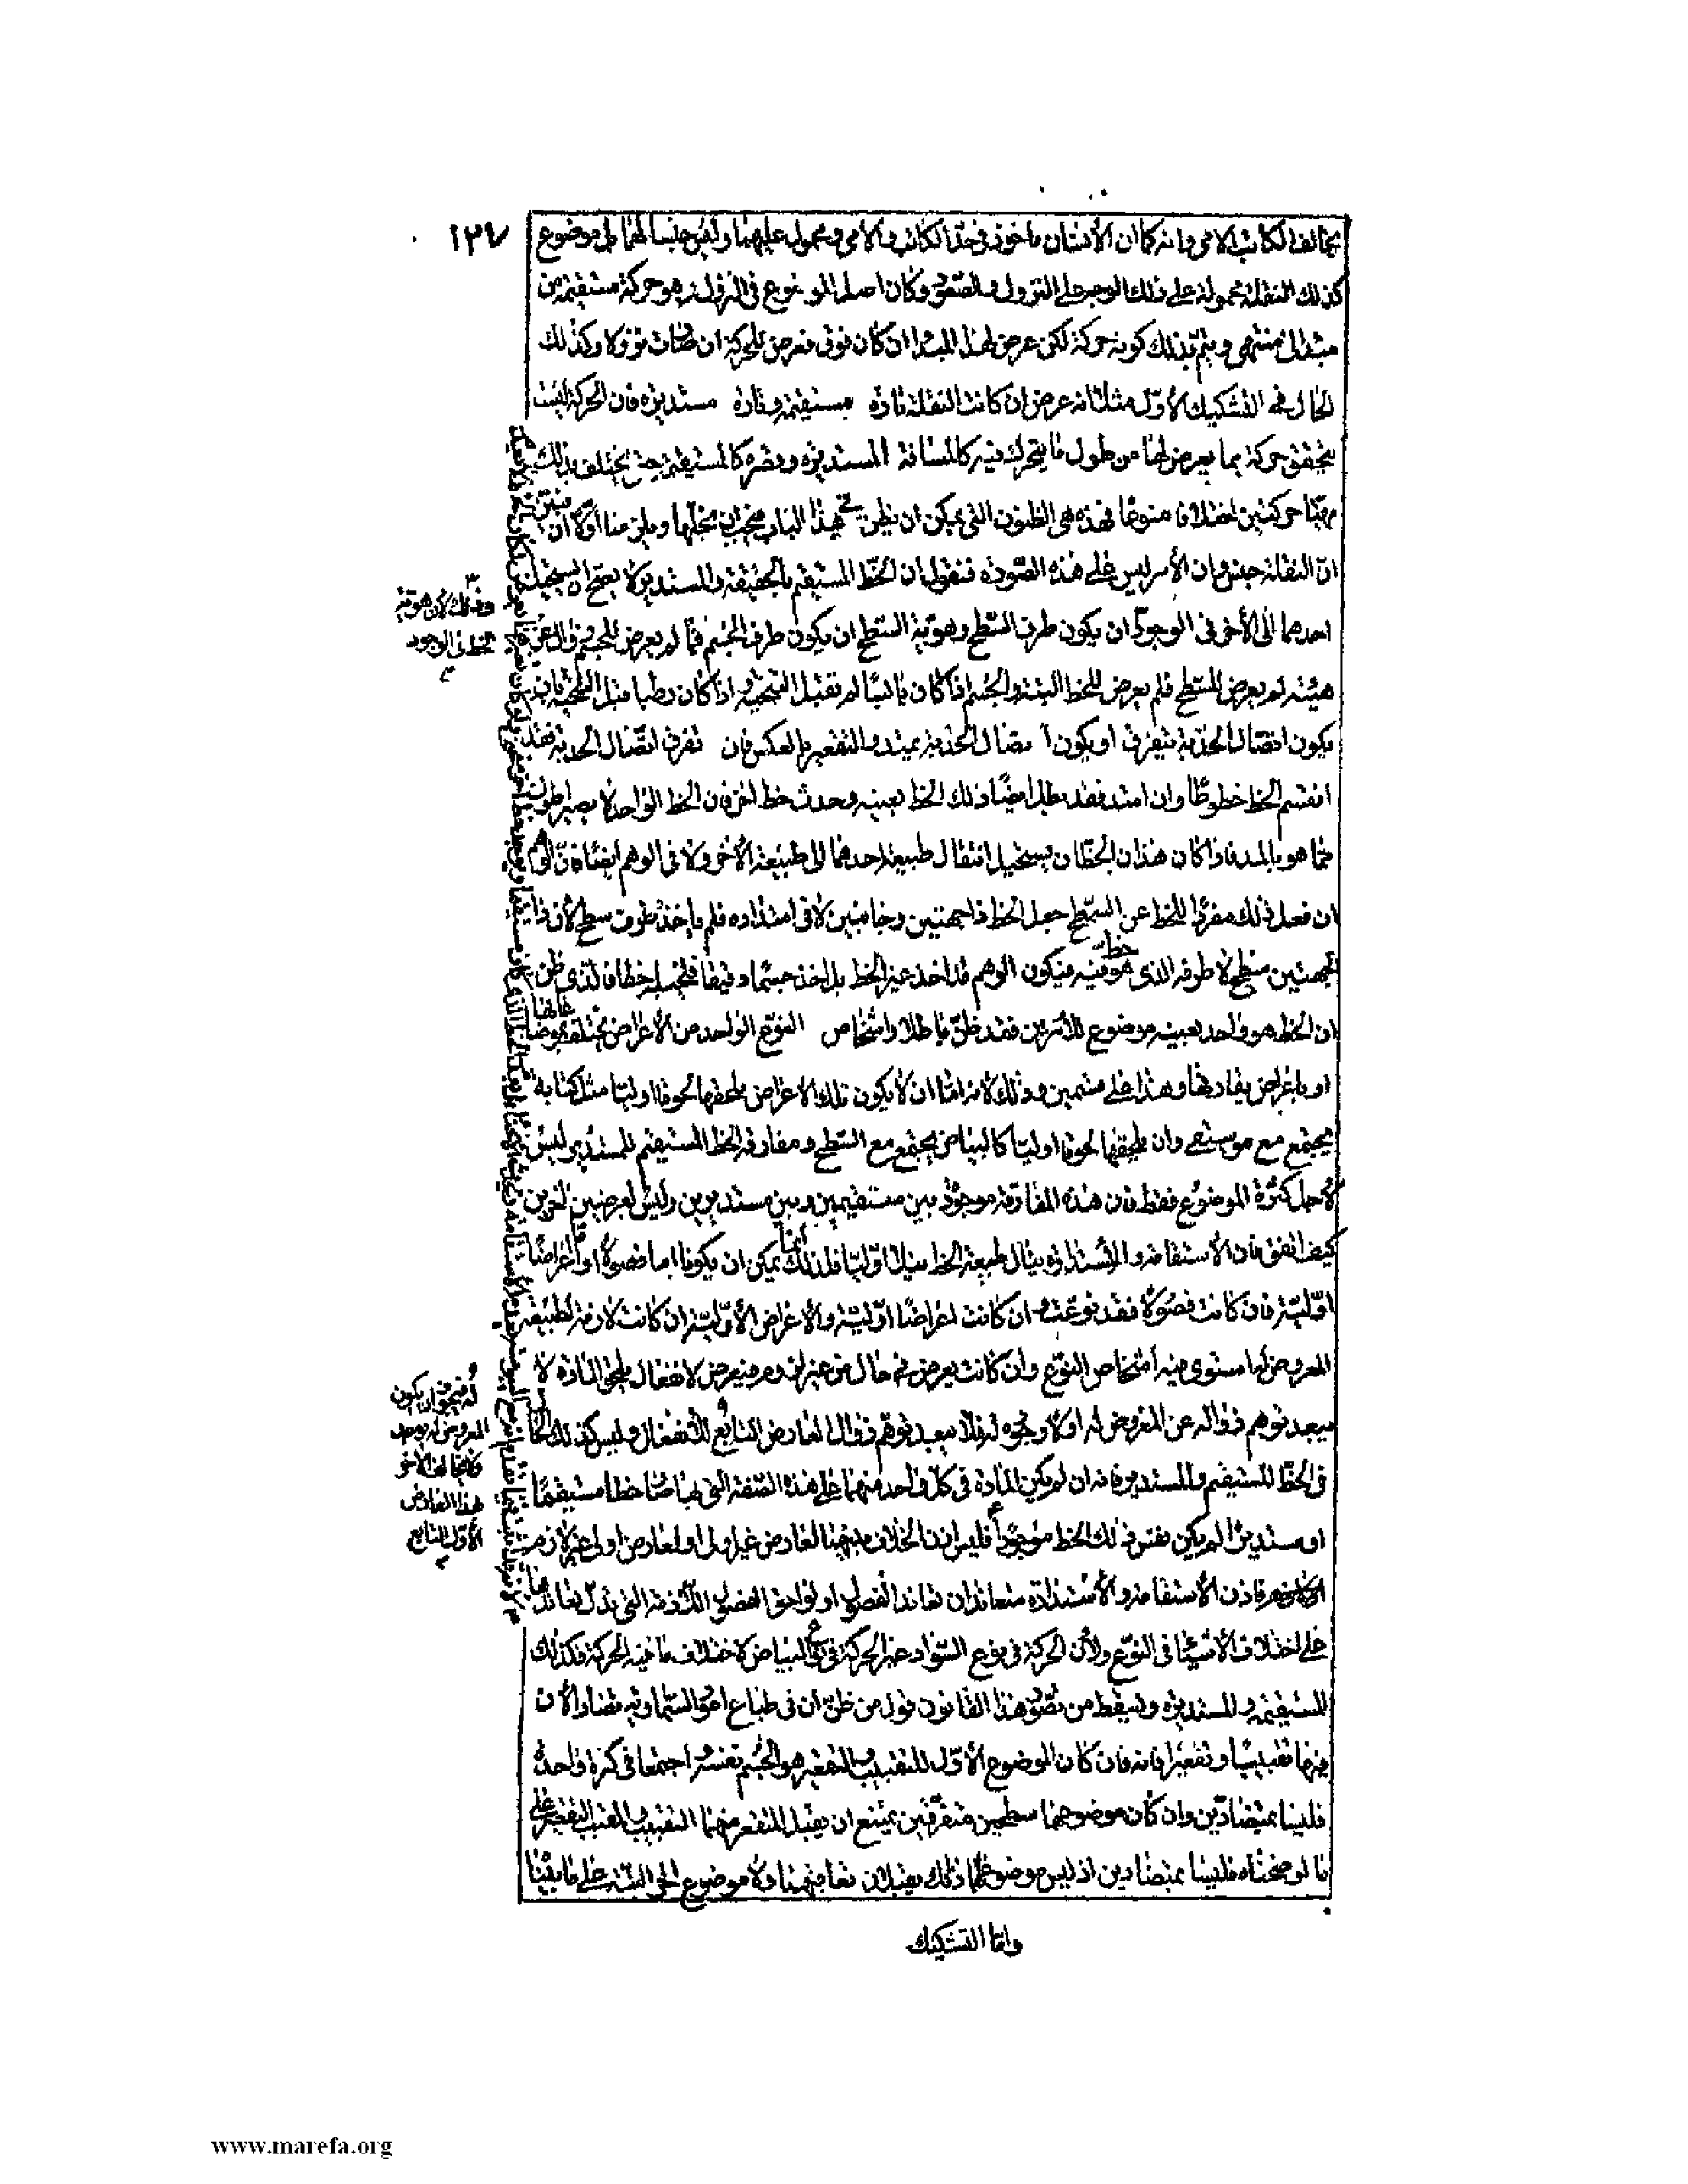 ١٢٧
يخالف الكاتب الامى وانه كما ان الأنسان ماخوذ فى حد الكاتب والأمى ومحمول عليهما وليس جنسا لهما بل موضوع
كذلك النقلة محمولة على ذلك الوجه على النزول والصعود وكان اصل الموضوع فى النزول هو حركة مستقيمة من
مبدا الى منتهى ويتم بذلك كونه حركة لكن عرض لهذا المبدا ان كان فوق فعرض للحركة ان صارت نزولا وكذلك
الحال فى التشكيك الأول مثلا انه عرض ان كانت النقلة تارة مستقيمة وتارة مستديرة فان الحركة ليست
يتحقق حركة بما يعرض لها من طول ما يتحرك فيه كالمسافة المستديرة وقصره كالمستقيمة حتى يختلف بذلك
حركتين اختلافا منوعا فهذه هى الظنون التى يمكن ان يظن فى هذا الباب فيجب ان نحلها ويلزمنا أولا ان نبين
ان النقلة جنس وان الأمر ليس على هذه الصورة فنقول ان الخط المستقيم بالحقيقة والمستدير لا يصح ان يستحيل
احدهما الى الأخر فى الوجود ان يكون طرف السطح وهوية السطح ان يكون طرف الجسم فما لم يعرض للجسم زوال عن
هيئته لم يعرض للسطح فلم يعرض للخط البتة والجسم اذا كان يابسا لم تقبل التحنية واذا كان رطبا قبل التحنية بان
يكون اتصال الحدبة يتفرق او يكون اتصال الحدبة يمتد والتقعير بالعكس فان تفرق اتصال الحدبة فقد
انقسم الخط خطوطا وان امتد فقد بطل ايضا ذلك الخط بعينه وحدث خط اخر فان الخط الواحد لا يصير اطول
مما هو بالمد فاذا كان هذان الخطان يستحيل انتقال طبيعة احدهما الى طبيعة الأخر ولا فى الوهم ايضا فان الوهم
ان فعل ذلك مفردا للخط عن السطح جعل الخط ذا جهتين وجانبين لا فى امتداده فلم ياخذ طرف سطح لأن ذا
الجهتين سطح لا طرفه الذى هو خط فيكون الوهم قد اخذ غير الخط بل اخذ جسما دقيقا فتخيله خطا فالذى ظن
ان الخط هو واحد بعينه موضوع للأمرين فقد ظن باطلا واشخاص النوع الواحد من الأعراض يختلف بموضوعاتها
او باغراض يقارنها وهذا على قسمين وذلك لانه اما ان لا يكون تلك الاعراض يلحقها لحوقا اوليا مثل كتابه
يجتمع مع موسيقى وان يلحقها لحوقا اوليا كالبياض يجتمع مع السطح ومفارقة الخط المستقيم للمستدير ليس
لأجل كثرة الموضوع فقط فان هذه المفارقة موجودة بين مستقيمين وبين مستديرين وليس لعرضين لغوين
كيف اتفق فان الأستقامة والأستدارة ينال طبيعة الخط نيلا اوليا فلذلك يمكن ان يكونا اما فصولا او اعراضا
اولية فان كانت فصولا فقد نوعت وان كانت اعراضا اولية والأعراض الأولية ان كانت لازمة لطبيعة
المعروض لها ستوى فيه اشخاص النوع وان كانت يعرض فى حال من غير لزوم فيعرض لانفعال يلحق المادة لا
يبعد توهم زواله عن المعروض له اولا وجوده له فلا يبعد توهم زوال العارض التابع للأنفعال وليس كذلك الحال
فى الخط المستقيم والمستدير فانه ان لم يكن المادة فى كل واحد منهما على هذه الصفة التى بها صار خطا مستقيما
او مستديرا لم يكن نفس ذلك الخط موجودا فليس اذن الخلاف بينهما العارض غير اولى او لعارض اولى غير لازم
فاذن الأستقامة والأستدارة متعاندان تعاند الفصول او لواحق الفصول اللازمة التى يدل تعاندها
على اختلاف الاشياء فى النوع ولأن الحركة فى نوع السواد غير الحركة فى نوع البياض لاختلاف ما فيه الحركة فكذلك
المستقيمة والمستديرة وليسقط من تصور هذا القانون قول من ظن ان فى طباع امور السماوية تضادا لأن
فيها تقبيبا وتقعيرا فانه فان كان الموضوع الأول للتقبيب والتقعير هو الجسم نفسه اجتمعا فى كرة واحدة
فليسا بمتضادين وان كان موضوعهما سطحين متفرقين يمتنع ان يقبل المتقعر منهما التقبيب والمقبب التقعير على
ما اوضحناه فليسا بمتضادين اذ ليس موضوعهما ذلك يقبلان تعاقبهما ولا موضوع اخر البتة على ما بينا
واما التشكيك
وذلك لأن هوية
الخط فى الوجود
له فيجوز ان يكون
المعروض له يوجد
ولا يخالف الاخر
هذا العارض
الأول التابع
www.marefa.org